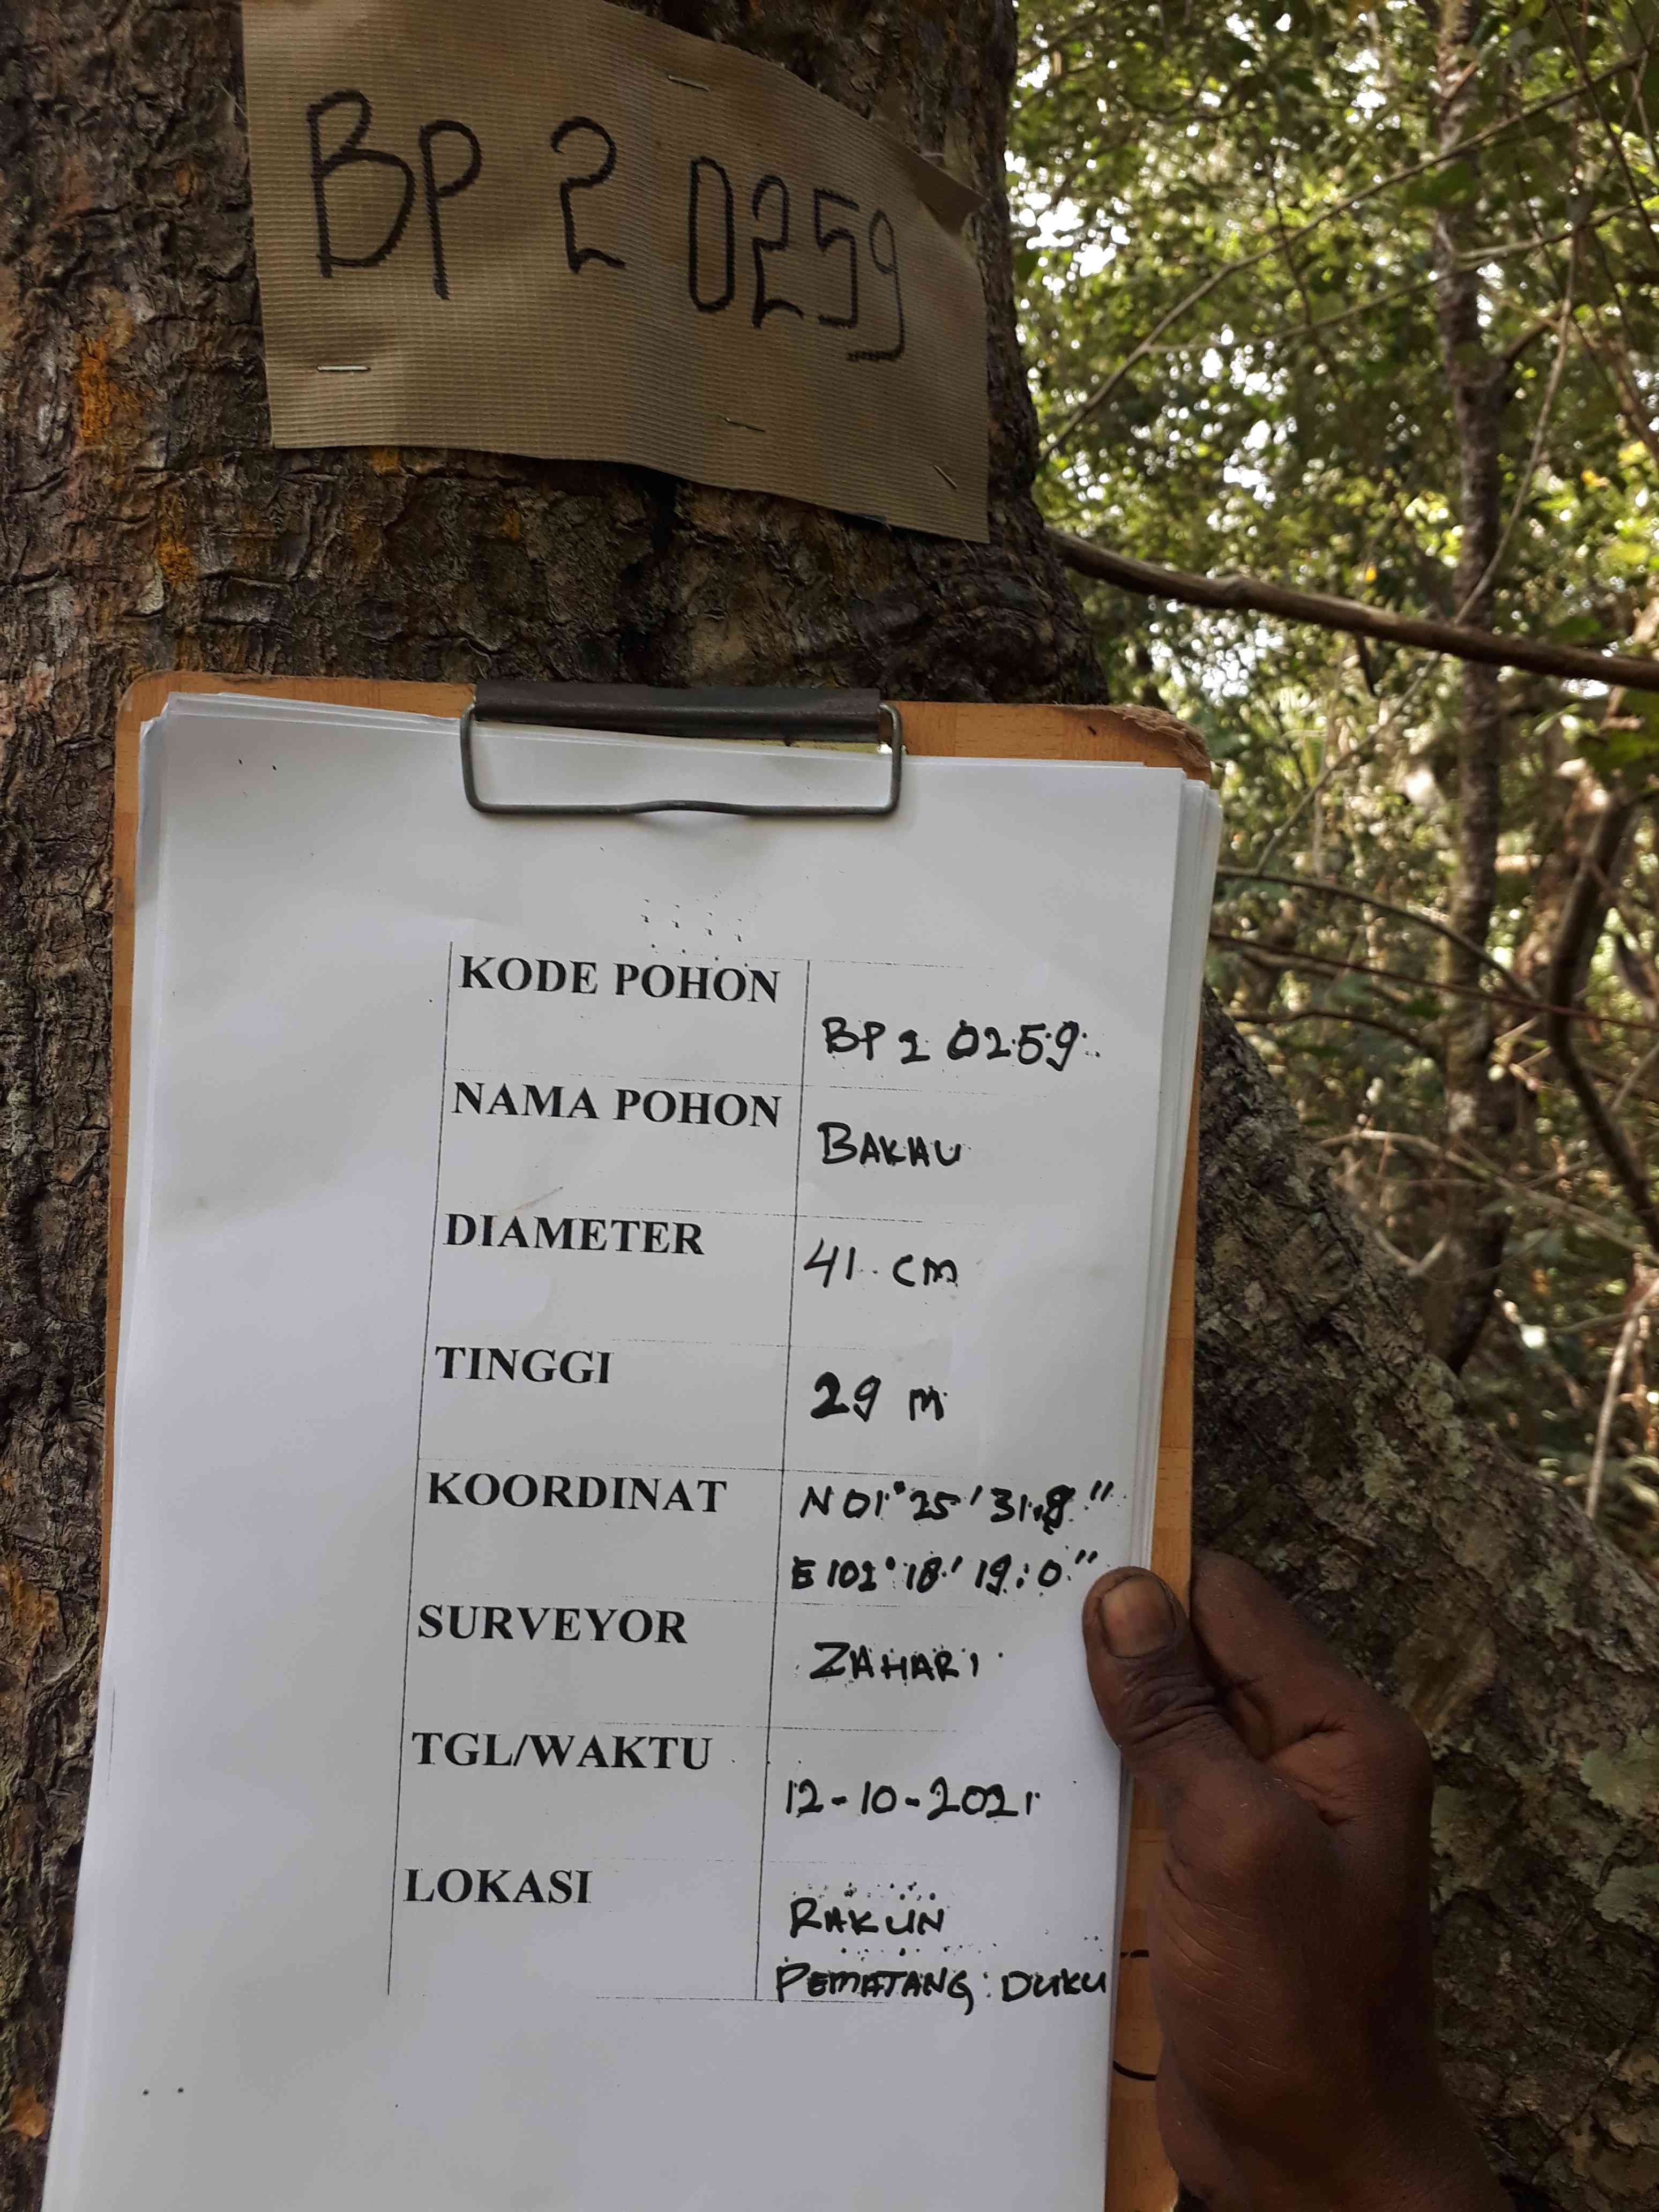 BP 2 0259
KODE POHON
BP 2 0259
NAMA POHON
BAKAU
DIAMETER
41 cm
TINGGI
29 m
KOORDINAT
N 01° 25' 31.8"
E 102° 18' 19.0"
SURVEYOR
ZAHARI
TGL/WAKTU
12-10-2021
LOKASI
RAKUN
PEMATANG DUKU